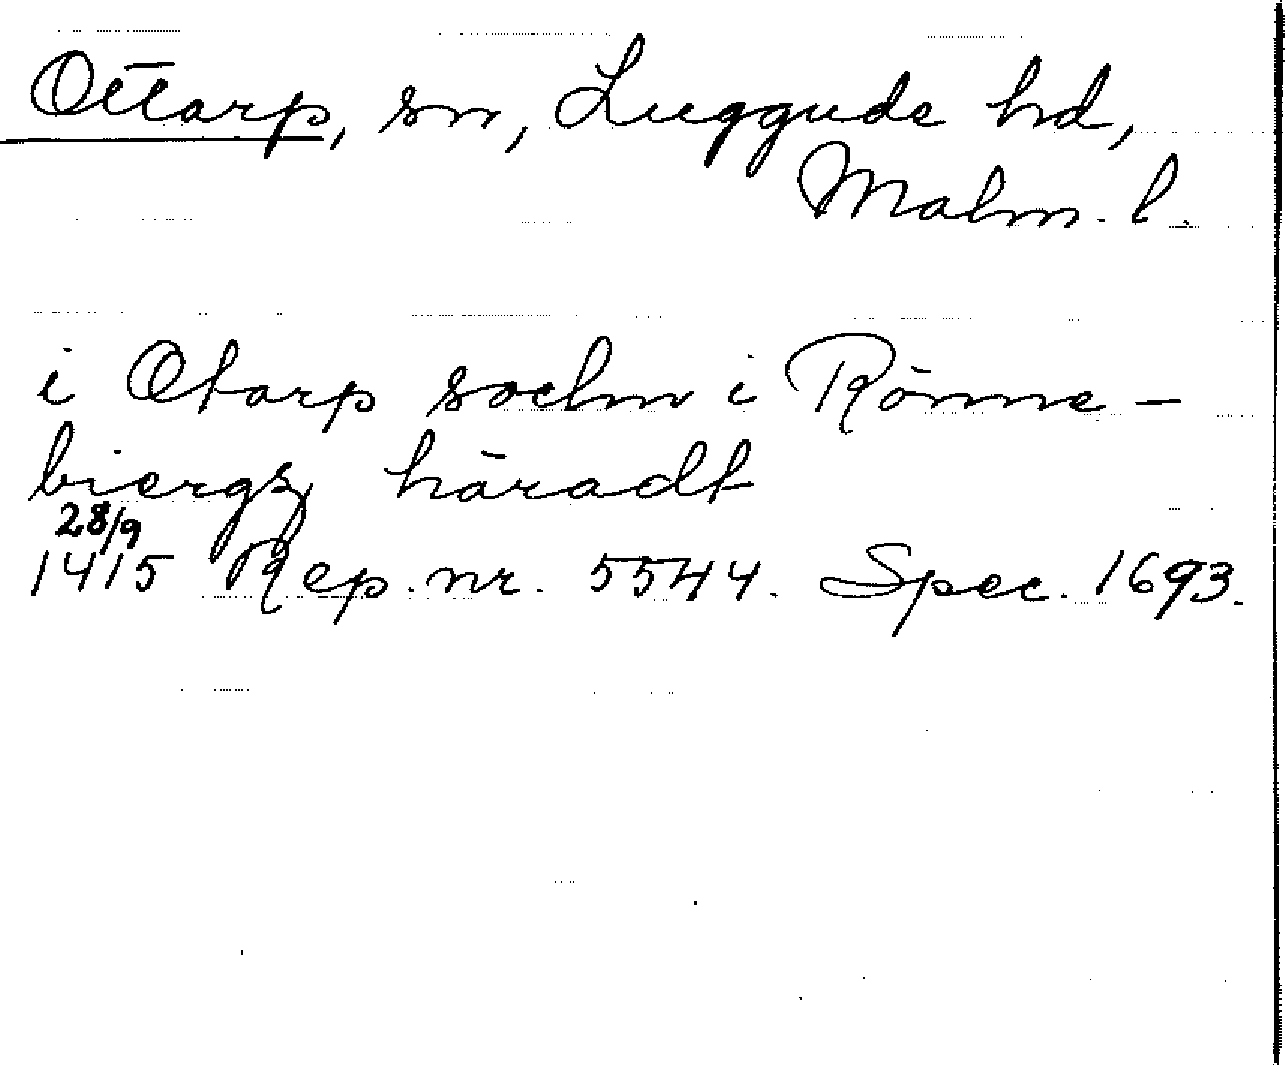 Ottarp, sn, Luggude hd,
Malm. l.
i Otarp sochn i Rönne-
biergs häradt
28/9
1415 Rep. nr. 5544. Spec. 1693.